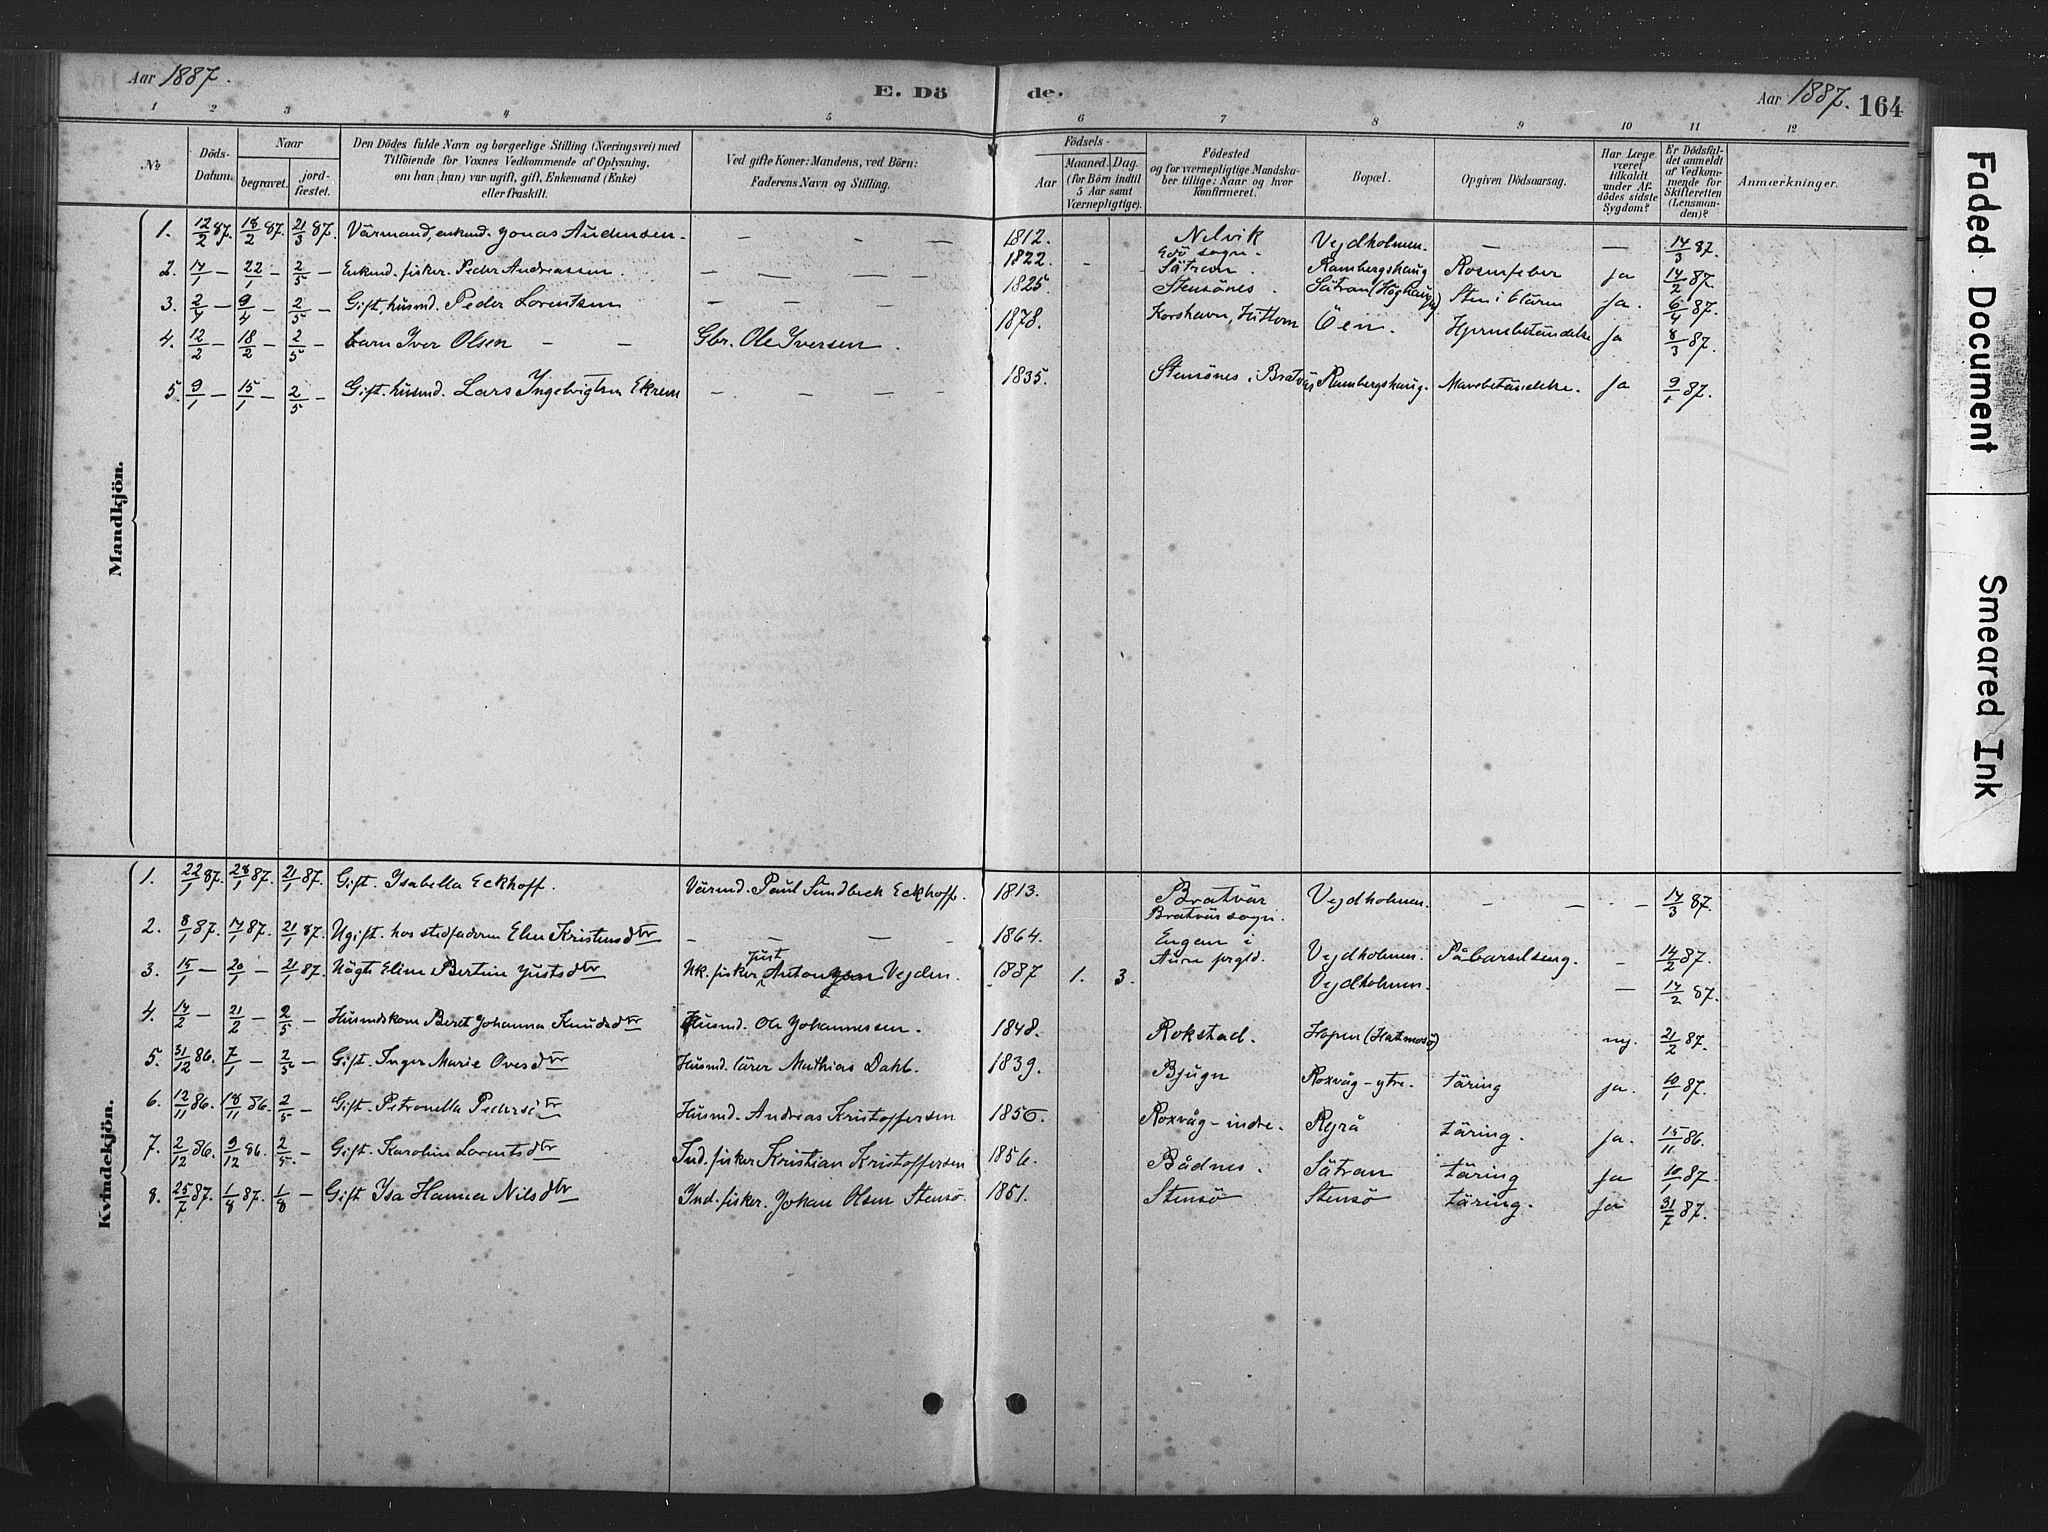 Aar 1887.
E. Döde.
Aar 1887. 164
1 2 3 4 5 6 7 8 9 10 11 12
No.
Döds-Datum.
Naar
begravet.
jordfæstet.
Den Dödes fulde Navn og borgerlige Stilling (Næringsvei) med
Tilföiende for Voxnes Vedkommende af Oplysning,
om han (hun) var ugift, gift, Enkemand (Enke)
eller fraskilt.
Ved gifte Koner: Mandens, ved Börn:
Faderens Navn og Stilling.
Födsels-
Aar
Maaned. Dag.
(for Börn indtil
5 Aar samt
Værnepligtige).
Födested
og for værnepligtige Mandskaber tillige: Naar og hvor
konfirmeret.
Bopæl.
Opgiven Dödsaarsag.
Har Læge
været
tilkaldt
under Afdödes sidste
Sygdom?
Er Dödsfaldet anmeldt
af Vedkommende for
Skifteretten
(Lensmanden)?
Anmærkninger.
Mandkjön.
1. 12/2 87. 18/2 87. 21/3 87. Värmand, enkmd. Jonas Audensen. — — — 1812. Nelvik Edö sogn. Vejdholmen. — — 14/3 87.
2. 14/1 — 22/1 — 2/5 — Enkmd. fisker Peder Andreassen. — — — 1822. Sätran. Rambergshaug Rosenfeber ja 14/2 87.
3. 2/4 — 9/4 — 2/5 — Gift, husmd. Peder Lorentsen — — — 1825. Stensönes. Sätran (Höghaugen) Sten i blären ja. 6/4 87.
4. 12/2 — 18/2 — 2/5 — barn Iver Olsen — — Gbr. Ole Iversen. 1878. Korshavn, Hittern Öen. Hjernebetändelse ja 8/3 87.
5. 9/1 — 15/1 — 2/5 — Gift. husmd. Lars Ingebrigtsen Ekrem — — — 1835. Stensönes i Bratvär Rambergshaug. Mavebetändelse. ja 9/1 87.
Kvindekjön.
1. 22/1 87. 28/1 87. 21/1 87. Gift. Isabella Eckhoff. Värmd. Paul Sundbeck Eckhoff. 1813. Bratvär Bratvär sogn. Vejdholmen. — — — 14/3 87.
2. 8/1 87. 14/1 87. 21/1 87. Ugift. hos stedfaderen Elen Kristensdtr — — — 1864. Engan i Aure prgld. Vejdholmen. På barselseng. — 14/2 87.
3. 15/1 — 20/1 — 21/1 87. Uägte Eline Bertine Justsdtr Uk. fisker Just Anton Vejden. 1887 1. 3. Vejdholmen. — 14/2 87.
4. 14/2 — 21/2 — 2/5 — Husmdskone Beret Johanna Knudsdtr Husmd. Ole Johannessen. 1848. Rokstad. Hopen (Hatmosö) nej. 21/2 87.
5. 31/12 86. 7/1 — 2/5 — Gift. Inger Marie Ovesdtr Husmd. lärer Mathias Dahl. 1839. Bjugn Roxvåg-ytre. täring ja. 10/1 87.
6. 12/11 86. 18/11 86. 2/5 — Gift. Petronella Pedersdtr Husmd. Andreas Kristoffersen 1856. Roxvåg-indre. Rejrå täring. ja. 15/11 86.
7. 2/12 86. 9/12 86. 2/5. — Gift. Karoline Lorentsdtr Ind. fisker Kristian Kristoffersen 1856. Bådnes. Sätran täring ja 10/1 87.
8. 25/7 87. 1/8 87. 1/8 — Gift Isa Hanna Nilsdtr Ind. fisker. Johan Olsen Stensö. 1851. Stensö Stensö täring. ja 31/7 87.
Faded Document
Smeared Ink